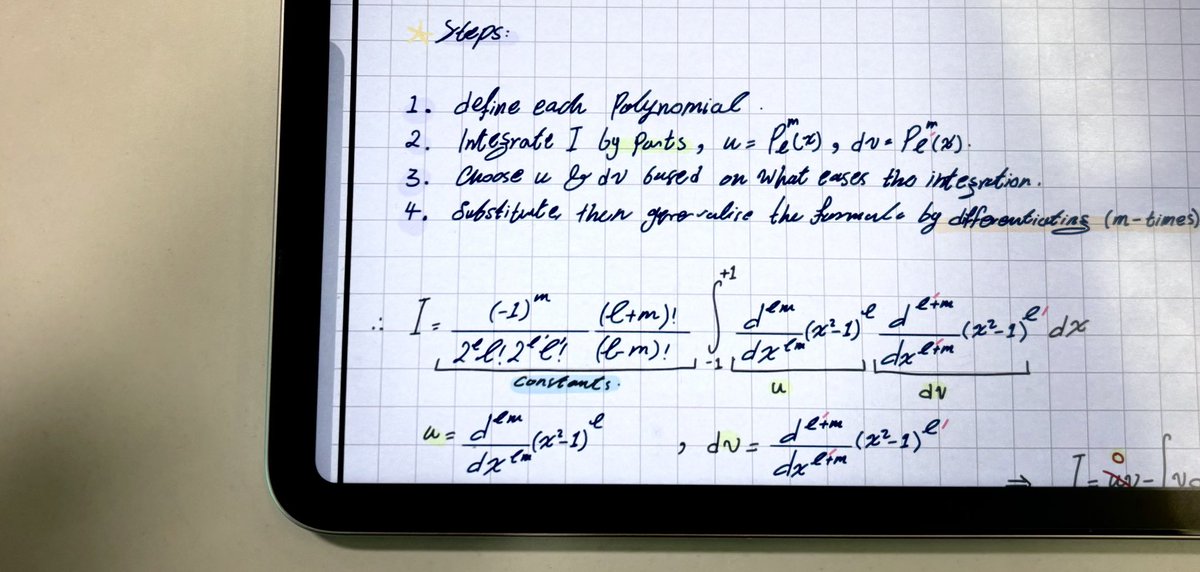 * Steps:
1. define each Polynomial.
2. Integrate I by parts, u = Pₗᵐ(x), dv = Pₗ'ᵐ(x).
3. Choose u & dv based on what eases the integration.
4. Substitute then generalise the formula by differentiating (m-times)
∴ I = (-1)ᵐ / 2ˡl! 2ˡ'l'! (l+m)! / (l-m)! ∫₋₁⁺¹ dˡᵐ/dxˡᵐ (x²-1)ˡ dˡ'⁺ᵐ/dxˡ'⁺ᵐ (x²-1)ˡ' dx
constants. u dv
u = dˡᵐ/dxˡᵐ (x²-1)ˡ , dv = dˡ'⁺ᵐ/dxˡ⁺ᵐ (x²-1)ˡ'
⇒ I = uv 0 - ∫v